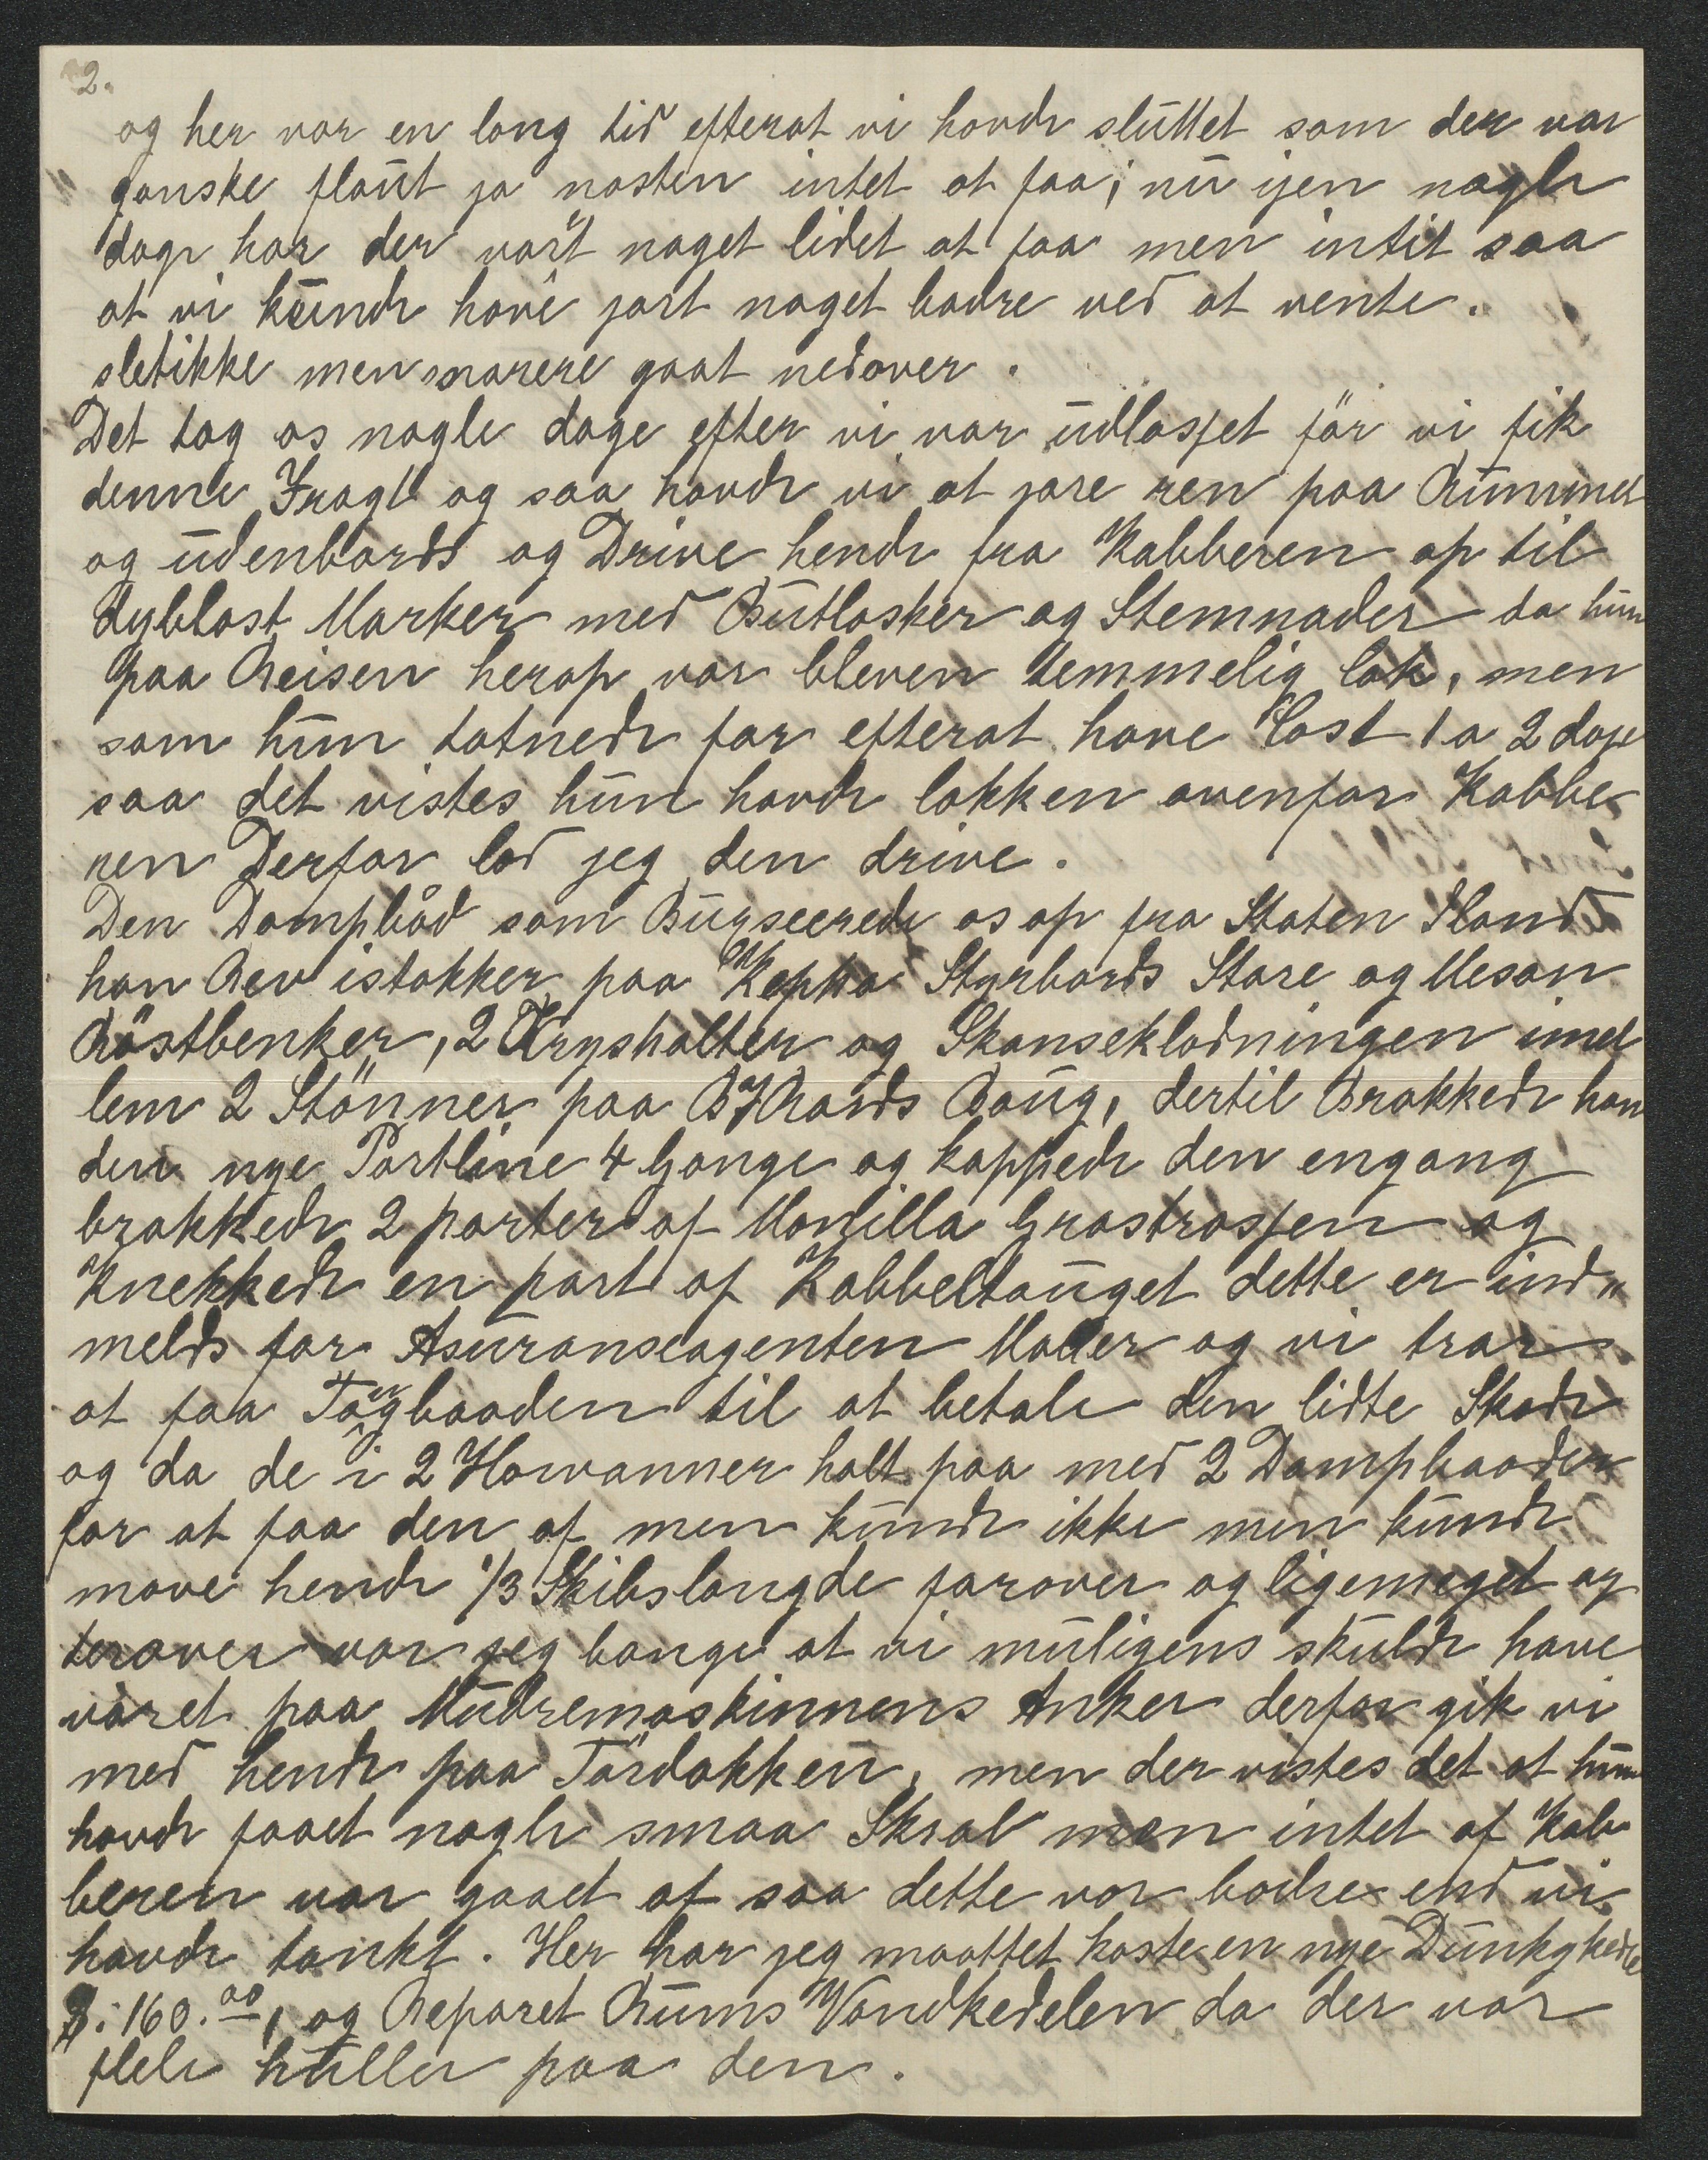 2.
og her var en lang tid efterat vi havde sluttet som der var
ganske flaut ja nasten intet at faa; nu ijen nogle
dage har der vart noget lidet at faa men intit saa
at vi kunde have jort noget badre ved at vente.
sletikke men snarere gaat nedover.
Det tog os nogle dage efter vi var udlosset för vi fik
denne Fragt og saa havde vi at jore ren paa Rummet
og udenbords og Drive hende fra Kabberen op til
dyblast Marker med Butlosker og Stemnader da hun
paa Reisen herop var bleven temmelig lak, men
som hun tatnede for efterat have Lost 1 a 2 dage
saa det vistes hun havde lakken ovenfor Kobbe
ren Derfor lod jeg den drive.
Den Dampbåd som Bugseerede os op fra Staten Iland
han Rev istokker paa Styrbords Store og Mesan
Röstbenker, 2 Krysholter og Skanseklodningen imel
lem 2 Stönner paa Boug, dertil Brakkede han
den nye Portline 4 Gange og kappede den engang
brakkede 2 parter af Manilla Grastrossen og
Knekkede en part af Kabbeltouget dette er ind"
melds for Asuranseagenten og vi tror
at faa Tougbaaden til at betale den lidte Skade
og da de i 2 Howanner holt paa med 2 Dampbaader
for at faa den af men kunde ikke men kunde
move hende 1/3 Skibslangde forover og ligemeget ag
terover var jeg bange at vi muligens skulde have
väret paa Mudremaskinnens Anker derfor gik vi
med hende paa Tördokken, men der vistes det at hun
havde faaet nogle smaa Skral men intet af Kab
beren var gaaet af saa dette var bodre end vi
havde tankt. Her har jeg maattet koste en nye Dunkykedle
$: 160.00, og Reparet Rums Vandkedelen da der var
flele huller paa den.